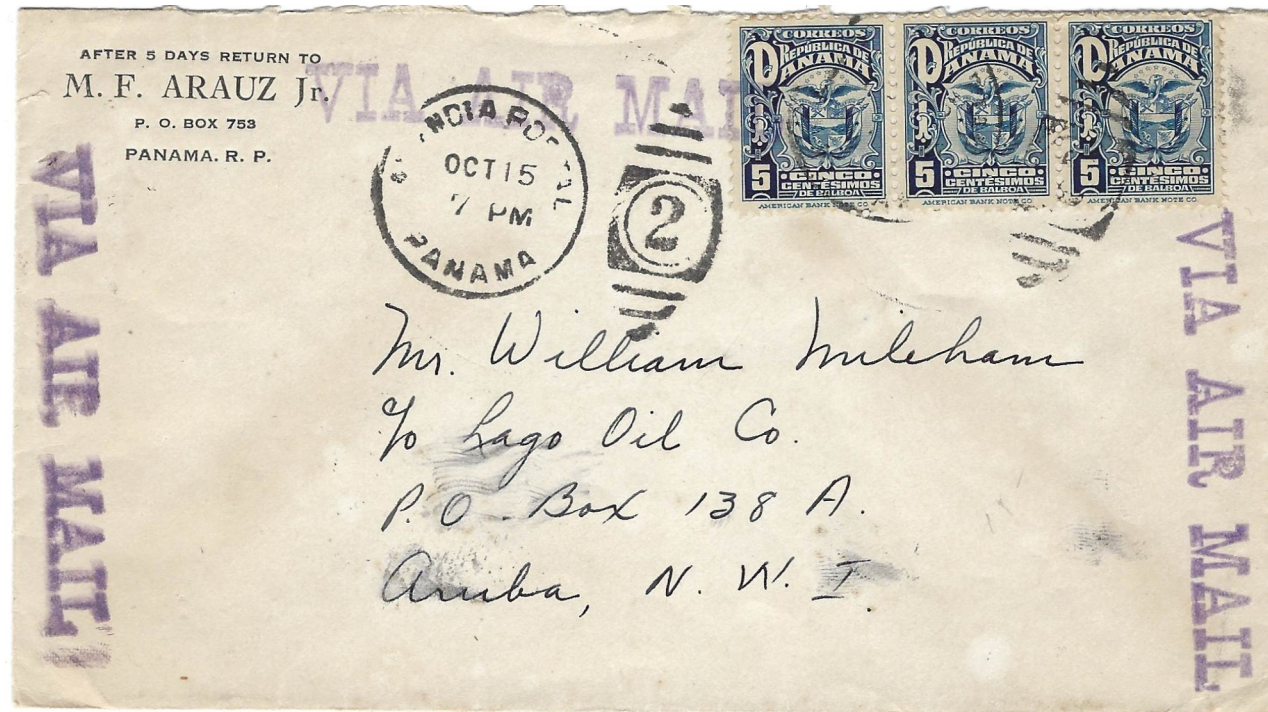 AFTER 5 DAYS RETURN TO
M. F. ARAUZ Jr.
P. O. BOX 753
PANAMA. R. P.
VIA AIR MAIL
OCT 15
7 PM
PANAMA
2
CORREOS
REPÚBLICA DE
PANAMA
5
CINCO
CENTÉSIMOS
DE BALBOA
AMERICAN BANK NOTE CO.
CORREOS
REPÚBLICA DE
PANAMA
5
CINCO
CENTÉSIMOS
DE BALBOA
AMERICAN BANK NOTE CO.
CORREOS
REPÚBLICA DE
PANAMA
5
CINCO
CENTÉSIMOS
DE BALBOA
AMERICAN BANK NOTE CO.
VIA AIR MAIL
VIA AIR MAIL
Mr. William Mileham
c/o Lago Oil Co.
P.O. Box 138 A.
Aruba, N. W. I.